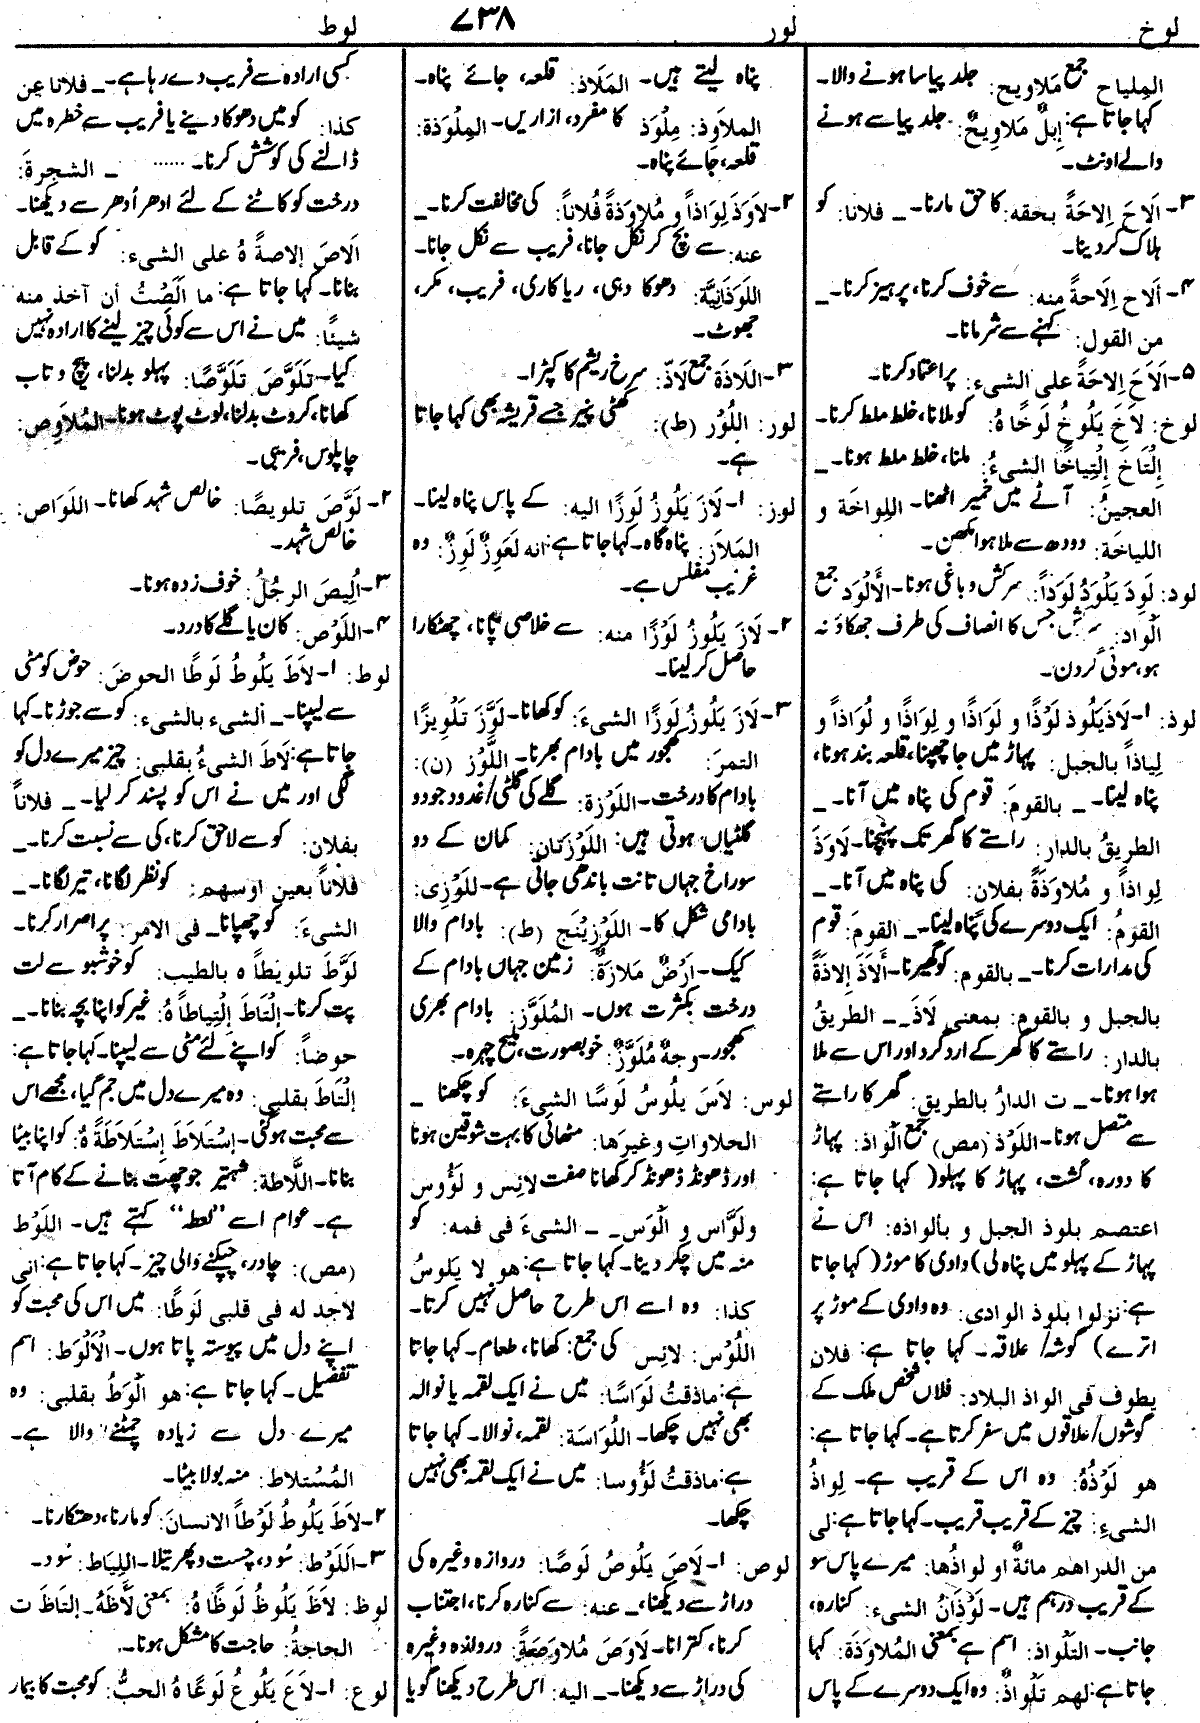 لوخ
لور
۷۳۸
لوط
المِلیاح جمع مَلاویح: جلد پیاسا ہونے والا۔
کہا جاتا ہے: إبلٌ مَلاوِیحٌ. جلد پیاسے ہونے
والے اونٹ۔
۳-اَلَاحَ اِلاحَةً بحقه: کا حق مارنا۔ _ فلانا: کو
ہلاک کردینا۔
۴-اَلاح اِلَاحةً منه: سے خوف کرنا، پرہیز کرنا۔ _
من القول: کہنے سے شرمانا۔
۵-اَلَاحَ اِلاحَةً علی الشیء: پر اعتماد کرنا۔
لوخ: لاَخَ یَلُوخُ لَوخًا هُ: کو ملانا، خلط ملط کرنا۔
اِلْتَاخَ اِلْتِیاخًا الشیءُ: ملنا، خلط ملط ہونا۔ _
العجینُ: آٹے میں خمیر اٹھنا۔ اللِواخَة و
اللیاخَة: دودھ سے ملا ہوا مکھن۔
لود: لَوِدَ یَلْوَدُ لَوَداً: سرکش و باغی ہونا۔ الأَلْوَد جمع
اَلْواد: سرکش جس کا انصاف کی طرف جھکاؤ نہ
ہو، موٹی گردن۔
لوذ: ۱-لَاذَ یَلُوذ لَوْذًا و لَوَاذًا و لِوَاذًا و لُوَاذاً و
لِیاذاً بالجبل: پہاڑ میں جا چھپنا، قلعہ بند ہونا،
پناہ لینا۔ _ بالقومَ: قوم کی پناہ میں آنا۔ _
الطریقُ بالدار: راستے کا گھر تک پہنچنا۔ لاوَذَ
لِواذاً و مُلاوَذَةً بفلان: کی پناہ میں آنا۔ _
القومُ: ایک دوسرے کی پناہ لینا۔ _ القومَ: قوم
کی مدارات کرنا۔ _ بالقوم: کو گھیرنا۔ أَلَاذَ اِلاذَةً
بالجبل و بالقوم: بمعنی لَاذَ۔ _ الطریقُ
بالدار: راستے کا گھر کے اردگرد اور اس سے ملا
ہوا ہونا۔ _ ت الدارُ بالطریق: گھر کا راستے
سے متصل ہونا۔ اللَوْذ (مص) جمع اَلْواذ: پہاڑ
کا دورہ، گشت، پہاڑ کا پہلو( کہا جاتا ہے:
اعتصم بلوذ الجبل و بألواذه: اس نے
پہاڑ کے پہلو میں پناہ لی) وادی کا موڑ( کہا جاتا
ہے: نزلوا بلوذ الوادی: وہ وادی کے موڑ پر
اترے) گوشہ/ علاقہ۔ کہا جاتا ہے: فلان
یطوف فی الواذ البلاد: فلاں شخص ملک کے
گوشوں/علاقوں میں سفر کرتا ہے۔ کہا جاتا ہے:
هو لَوْذُهُ: وہ اس کے قریب ہے۔ لِواذُ
الشیءِ: چیز کے قریب قریب۔ کہا جاتا ہے: لی
من الدراهم مائةٌ او لواذُها: میرے پاس سو
کے قریب درہم ہیں۔ لَوْذَانُ الشیء: کنارہ،
جانب۔ التلْواذ: اسم ہے بمعنی المُلاوَذَة: کہا
جاتا ہے: لهم تلْواذٌ: وہ ایک دوسرے کے پاس
پناہ لیتے ہیں۔ المَلَاذ: قلعہ، جائے پناہ۔
الملاوِذ: مِلْوَذ کا مفرد، ازاریں۔ المِلْوَذة:
قلعہ، جائے پناہ۔
۲-لاوَذَ لِوَاذاً و مُلاوَذةً فُلاناً: کی مخالفت کرنا۔ _
عنه: سے بچ کر نکل جانا، فریب سے نکل جانا۔
اللَوَذَانِیَّة: دھوکا دہی، ریاکاری، فریب، مکر،
جھوٹ۔
۳-اللَاذَة جمع لَاذ: سرخ ریشم کا کپڑا۔
لور: اللُوْر (ط): کھٹی پنیر جسے قریشہ بھی کہا جاتا
ہے۔
لوز: ۱-لَازَ یَلُوزُ لَوزًا الیه: کے پاس پناہ لینا۔
المَلاز: پناہ گاہ۔ کہا جاتا ہے: انه لَعَوِزٌ لَوِزٌ: وہ
غریب مفلس ہے۔
۲-لَازَ یَلُوزُ لَوْزًا منه: سے خلاصی پانا، چھٹکارا
حاصل کر لینا۔
۳-لَازَ یَلُوزُ لَوزًا الشیءَ: کو کھانا۔ لَوَّزَ تَلْوِیزًا
التمرَ: کھجور میں بادام بھرنا۔ اللَّوْز (ن):
بادام کا درخت۔ اللَوْزَة: گلے کی گلٹی/غدود جو دو
گلٹیاں ہوتی ہیں: اللَوْزَتان: کمان کے دو
سوراخ جہاں تانت باندھی جاتی ہے۔ للَوْزِی:
بادامی شکل کا۔ اللَوْزِیْنَج (ط): بادام والا
کیک۔ اَرْضٌ مَلازَةٌ: زمین جہاں بادام کے
درخت بکثرت ہوں۔ المُلَوَّز: بادام بھری
کھجور۔ وجهٌ مُلَوَّزٌ: خوبصورت، ملیح چہرہ۔
لوس: لَاسَ یلُوسُ لَوسًا الشیءَ: کو چکھنا _
الحلاواتِ وغیرَها: مٹھائی کا بہت شوقین ہونا
اور ڈھونڈ ڈھونڈ کر کھانا صفت لائِس و لَؤُوس
ولَوَّاس و اَلْوَس۔ _ الشیءَ فی فمه: کو
منہ میں چکر دینا۔ کہا جاتا ہے: هو لا یَلوسُ
کذا: وہ اسے اس طرح حاصل نہیں کرتا۔
اللُوْس: لائِس کی جمع: کھانا، طعام۔ کہا جاتا
ہے: ماذقتُ لَوَاسًا: میں نے ایک لقمہ یا نوالہ
بھی نہیں چکھا۔ اللُوَاسَة: لقمہ، نوالا۔ کہا جاتا
ہے: ماذقتُ لَؤُوسا: میں نے ایک لقمہ بھی نہیں
چکھا۔
لوص: ۱-لَاصَ یَلُوصُ لَوصًا: دروازہ وغیرہ کی
دراڑ سے دیکھنا، _ عنه: سے کنارہ کرنا، اجتناب
کرنا، کترانا۔ لَاوَصَ مُلاوَصَةً: دروازہ وغیرہ
کی دراڑ سے دیکھنا۔ _ الیه: اس طرح دیکھنا گویا
کسی ارادہ سے فریب دے رہا ہے۔ _ فلانا عن
کذا: کو میں دھوکا دینے یا فریب سے خطرہ میں
ڈالنے کی کوشش کرنا۔ ...... _ الشجرةَ:
درخت کو کاٹنے کے لئے ادھر اُدھر سے دیکھنا۔
اَلاصَ إلاصةً هُ علی الشیء: کو کے قابل
بنانا۔ کہا جاتا ہے: ما اَلَصْتُ أن آخذ منه
شیئًا: میں نے اس سے کوئی چیز لینے کا ارادہ نہیں
کیا۔ تَلَوَّصَ تَلَوَّصًا: پہلو بدلنا، پیچ و تاب
کھانا، کروٹ بدلنا، لوٹ پوٹ ہونا۔ المُلاوِص:
چاپلوس، فریبی۔
۲-لَوَّصَ تلویصًا: خالص شہد کھانا۔ اللَوَاص:
خالص شہد۔
۳-اُلِیصَ الرجُلُ: خوف زدہ ہونا۔
۴-اللَوْص: کان یا گلے کا درد۔
لوط: ۱-لاَطَ یَلُوطُ لَوطًا الحوضَ: حوض کو مٹی
سے لیپنا۔ _ الشیء بالشیء: کو سے جوڑنا۔ کہا
جاتا ہے: لَاطَ الشیءُ بقلبی: چیز میرے دل کو
لگی اور میں نے اس کو پسند کر لیا۔ _ فلاناً
بفلان: کو سے لاحق کرنا، کی سے نسبت کرنا۔ _
فلاناً بعین اوسهم: کو نظر لگانا، تیر لگانا۔ _
الشیءَ: کو چھپانا _ فی الامر: پر اصرار کرنا۔
لَوَّطَ تلویطاً ه بالطیب: کو خوشبو سے لت
پت کرنا۔ اِلْتَاطَ اِلْتِیاطاً هُ: غیر کو اپنا بچہ بنانا۔ _
حوضاً: کو اپنے لئے مٹی سے لیپنا۔ کہا جاتا ہے:
اِلْتَاطَ بقلبی: وہ میرے دل میں جم گیا، مجھے اس
سے محبت ہوگئی۔ اِسْتَلَاطَ اِسْتِلَاطَةً هُ: کو اپنا بیٹا
بنانا۔ اللَّاطة: شہتیر جو چھت بنانے کے کام آتا
ہے۔ عوام اسے "لعطہ" کہتے ہیں۔ اللَوْط
(مص): چادر، چپکنے والی چیز۔ کہا جاتا ہے: انی
لاجد له فی قلبی لَوطًا: میں اس کی محبت کو
اپنے دل میں پیوستہ پاتا ہوں۔ الْاَلْوَط: اسم
تفضیل۔ کہا جاتا ہے: هو اَلْوَطُ بقلبی: وہ
میرے دل سے زیادہ چمٹنے والا ہے۔
المُسْتلاط: منہ بولا بیٹا۔
۲-لَاطَ یَلُوطُ لَوْطاً الانسانَ: کو مارنا، دھتکارنا۔
۳-اَللَوْط: سُود، چست و پھرتیلا۔ اللِیَاط: سُود۔
لوظ: لاَظَ یَلُوظُ لَوظًا هُ: بمعنی لَأَظَهُ۔ اِلتَاظَ ت
الحاجةُ: حاجت کا مشکل ہونا۔
لوع: ۱-لَاعَ یَلُوعُ لَوعًا هُ الحبُّ: کو محبت کا بیمار